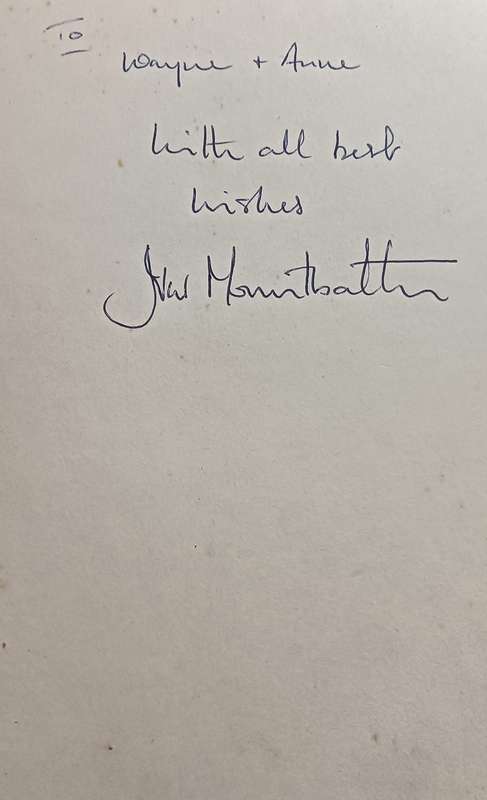 To
Wayne + Anne
With all best
wishes
Ivar Mountbatten